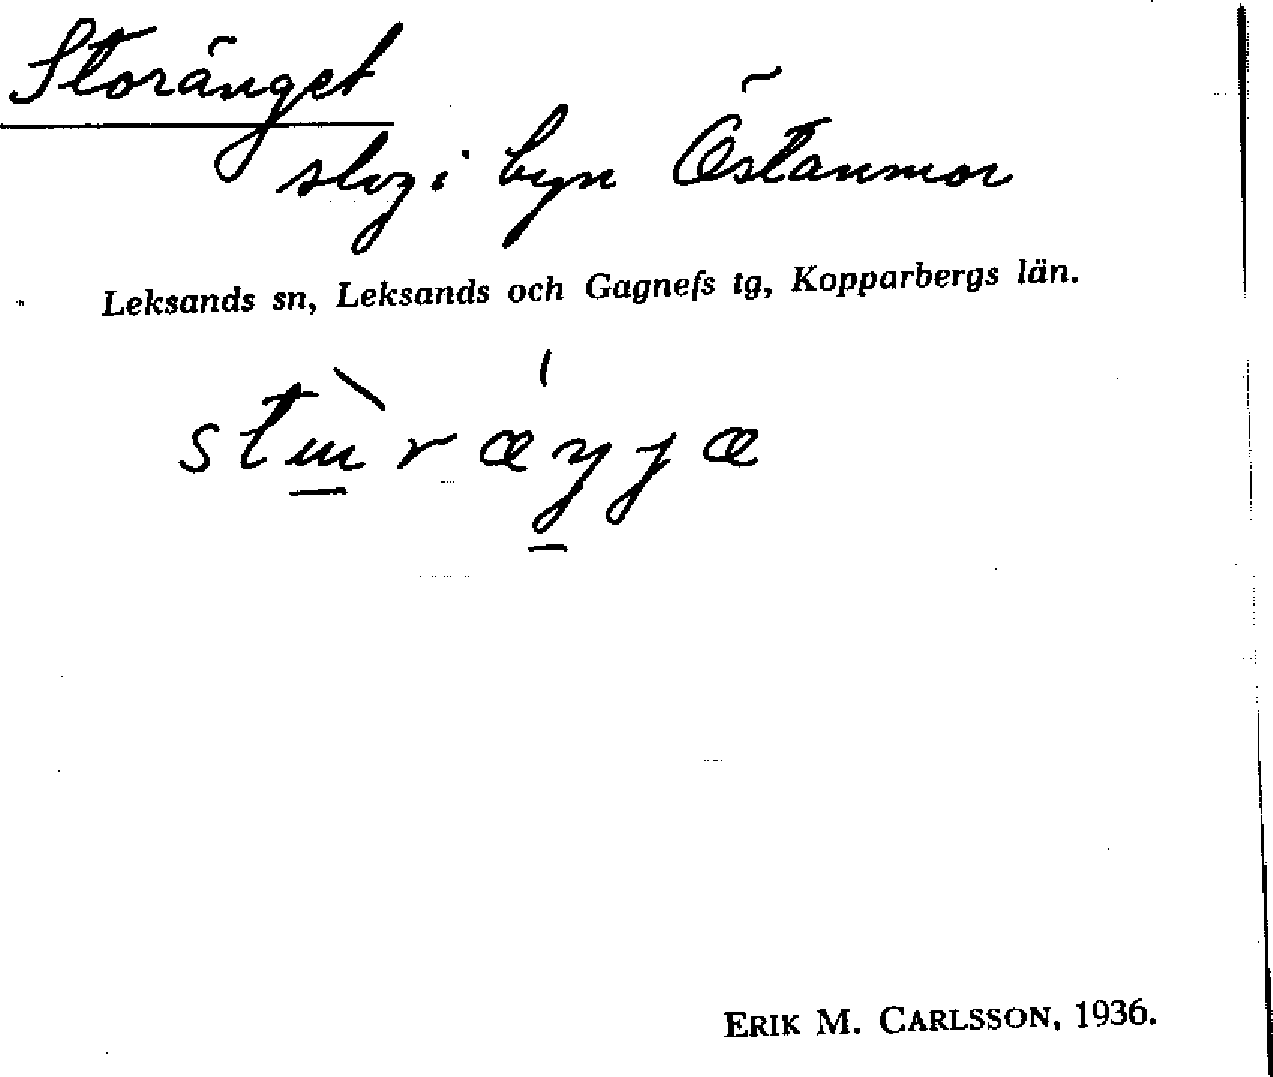 Storänget
skog i byn Östanmor
Leksands sn, Leksands och Gagnefs tg, Kopparbergs län.
ERIK M. CARLSSON, 1936.